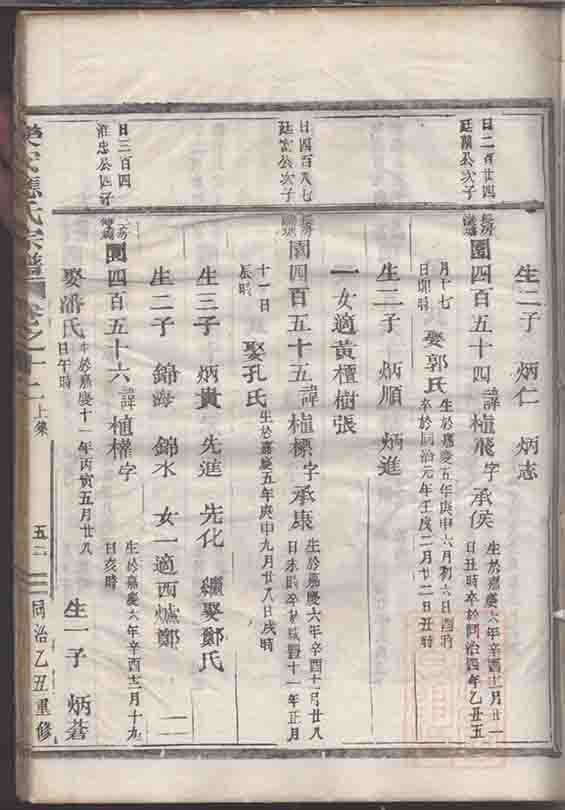 生二子 炳仁 炳志
日二百廿四
廷蘭公次子
園四百五十四諱植飛字承侯
生於嘉慶六年辛酉十二月廿一
日丑時卒於同治四年乙丑五
月十七
日卯時
娶郭氏
生於嘉慶五年庚申六月初六日酉時
卒於同治元年壬戌二月廿二日丑時
生二子 炳順 炳進
一女適黃檀樹張
日四百八七
廷富公次子
園四百五十五諱植標字承康
生於嘉慶六年辛酉十一月廿八
日未時卒於咸豐十一年正月
十一日
辰時
娶孔氏
生於嘉慶五年庚申九月廿八日戌時
生三子 炳貴 先進 先化 續娶鄭氏
生二子 錦海 錦水 女一適西爐鄭
日三百四
維忠公四子
園四百五十六諱植權字
生於嘉慶六年辛酉十二月十九
日亥時
娶潘氏
生於嘉慶十一年丙寅五月廿八
日午時
生一子 炳蒼
應氏宗譜 卷之十二 上集 五二 同治乙丑重修